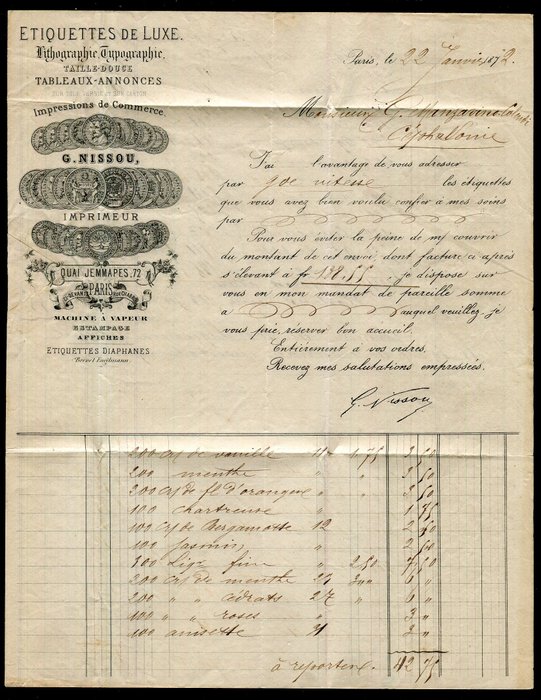 ETIQUETTES DE LUXE.
Lithographie, Typographie,
TAILLE-DOUCE
TABLEAUX-ANNONCES
SUR TOLE VERNIE ET SUR CARTON
Impressions de Commerce.
G. NISSOU,
IMPRIMEUR
QUAI JEMMAPES, 72
PARIS
MACHINE À VAPEUR
ESTAMPAGE
AFFICHES
ETIQUETTES DIAPHANES
Paris, le 22 Janvier 1872.
Monsieur G.
Céphalonie
J'ai l'avantage de vous adresser
par gde vitesse les étiquettes
que vous avez bien voulu confier à mes soins
par
Pour vous éviter la peine de m'en couvrir
du montant de cet envoi, dont facture ci après
s'élevant à fr 198.55, je dispose sur
vous en mon mandat de pareille somme
à auquel veuillez, je
vous prie, réserver bon accueil.
Entièrement à vos ordres,
Recevez mes salutations empressées.
G. Nissou
200 de vanille 11 1,75 3,50
200 menthe " " 3,50
200 de fl d'oranger " " 3,50
100 chartreuse " " 1,75
100 de Bergamotte 12 2,50
100 Jasmin " 2,50
300 fine " 2,50 7,50
200 de menthe 27 3 " 6 "
200 " " cédrats 27 " 6 "
100 " " roses " 3 "
100 anisette 31 3 "
à reporter. 42,75